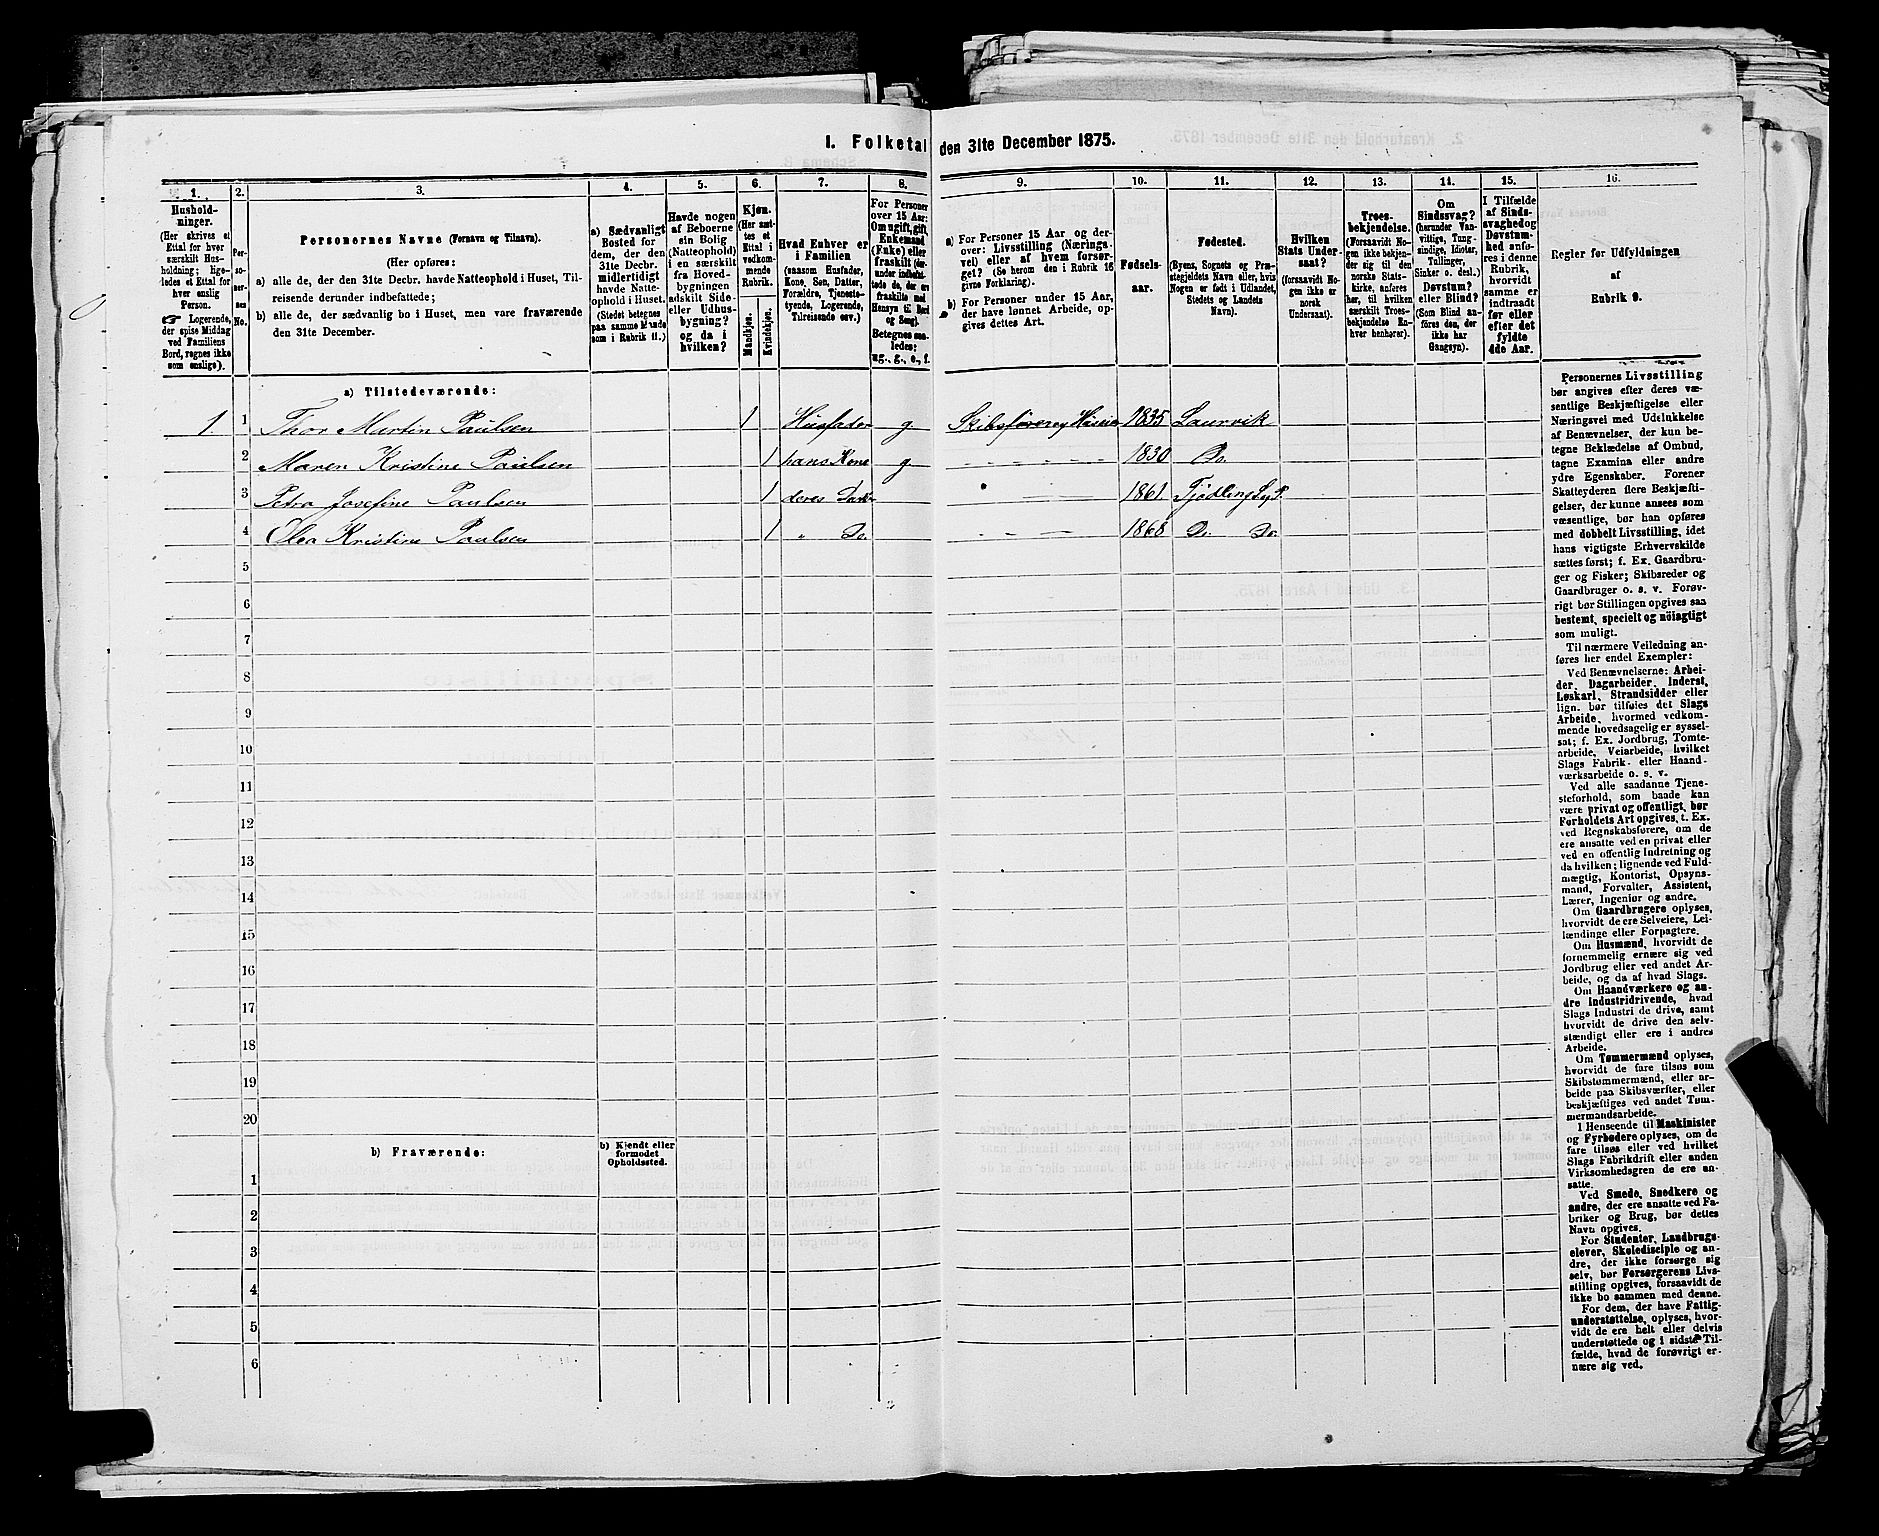 I. Folketal den 31te December 1875.
1. 2. 3. 4. 5. 6. 7. 8. 9. 10. 11. 12. 13. 14. 15. 16.
Hushold-
ninger.
(Her skrives et
Ettal for hver
særskilt Hus-
holdning; lige-
ledes et Ettal for
hver enslig
Person.
☞ Logerende,
der spise Middag
ved Familiens
Bord, regnes ikke
som enslige).
Per-
so-
ner-
nes
No.
Personernes Navne (Fornavn og Tilnavn).
(Her opføres:
a) alle de, der den 31te Decbr. havde Natteophold i Huset, Til-
reisende derunder indbefattede;
b) alle de, der sædvanlig bo i Huset, men vare fraværende
den 31te December.
a) Sædvanligt
Bosted for
dem, der den
31te Decbr.
midlertidigt
havde Natte-
ophold i Huset.
(Stedet betegnes
paa samme Maade
som i Rubrik 11.)
Havde nogen
af Beboerne
sin Bolig
(Natteophold)
i en særskilt
fra Hoved-
bygningen
adskilt Side-
eller Udhus-
bygning?
og da i
hvilken?
Kjøn.
(Her sæt-
tes et
Ettal i
vedkom-
mende
Rubrik.
Mandkjøn.
Kvindekjøn.
Hvad Enhver er
i Familien
(saasom Husfader,
Kone, Søn, Datter,
Forældre, Tjeneste-
tyende, Logerende,
Tilreisende osv.)
For Personer
over 15 Aar:
Om ugift, gift,
Enkemand
(Enke) eller
fraskilt
Betegnes saa-
ledes:
ug., g., e., f.
a) For Personer 15 Aar og der-
over: Livsstilling (Nærings-
vei) eller af hvem forsør-
get? (Se herom den i Rubrik 16
givne Forklaring).
b) For Personer under 15 Aar,
der have lønnet Arbeide, op-
gives dettes Art.
Fødsels-
aar.
Fødested.
(Byens, Sognets og Præ-
stegjeldets Navn eller, hvis
Nogen er født i Udlandet,
Stedets og Landets
Navn).
Hvilken
Stats Under-
saat?
(forsaavidt No-
gen ikke er
norsk
Undersaat).
Troes-
bekjendelse.
(Forsaavidt No-
gen ikke bekjen-
der sig til den
norske Stats-
kirke, anføres
her, til hvilken
særskilt Troes-
bekjendelse En-
hver henhører).
Om
Sindssvag?
(herunder Van-
vittige, Tung-
sindige, Idioter,
Tullinger,
Sinker o. desl.)
Døvstum?
eller Blind?
(Som Blind an-
føres den, der
ikke har
Gangsyn).
I Tilfælde
af Sinds-
svaghed og
Døvstum-
hed anfø-
res i denne
Rubrik,
hvorvidt
samme er
indtraadt
før eller
efter det
fyldte
4de Aar.
Regler for Udfyldningen
af
Rubrik 9.
a) Tilstedeværende:
1. 1 Thor Martin Paulsen 1 Husfader g Skibsfører og Huseier 1835 Laurvik
2 Maren Kristine Paulsen 1 hans Kone g 1830 Do.
3 Petra Josefine Paulsen 1 deres Datter 1861 Tjødling S, P.
4 Olea Kristine Paulsen 1 " Do. 1868 Do. Do.
5
6
7
8
9
10
11
12
13
14
15
16
17
18
19
20
b) Fraværende:
b) Kjendt eller
formodet
Opholdssted.
1
2
3
4
5
6
Personernes Livsstilling
bør angives efter deres væ-
sentlige Beskjæftigelse eller
Næringsvei med Udelukkelse
af Benævnelser, der kun be-
tegne Beklædelse af Ombud,
tagne Examina eller andre
ydre Egenskaber. Forener
Skatteyderen flere Beskjæfti-
gelser, der kunne ansees som
væsentlige, bør han opføres
med dobbelt Livsstilling, idet
hans vigtigste Erhvervskilde
sættes først; f. Ex. Gaardbru-
ger og Fisker; Skibsreder og
Gaardbruger o. s. v. Forøv-
rigt bør Stillingen opgives saa
bestemt, specielt og nöiagtigt
som muligt.
Til nærmere Veiledning an-
føres her endel Exempler:
Ved Benævnelserne: Arbei-
der, Dagarbeider, Inderst,
Løskarl, Strandsidder eller
lign. bør tilføies det Slags
Arbeide, hvormed vedkom-
mende hovedsagelig er syssel-
sat; f. Ex. Jordbrug, Tomte-
arbeide, Veiarbeide, hvilket
Slags Fabrik- eller Haand-
værksarbeide o. s. v.
Ved alle saadanne Tjene-
steforhold, som baade kan
være privat og offentligt, bør
Forholdets Art opgives, t. Ex.
ved Regnskabsførere, om de
ere ansatte ved en privat eller
ved en offentlig Indretning og
da hvilken; lignende ved Fuld-
mægtig, Kontorist, Opsyns-
mand, Forvalter, Assistent,
Lærer, Ingeniør og andre.
Om Gaardbrugere oplyses,
hvorvidt de ere Selveiere, Lei-
lændinge eller Forpagtere.
Om Husmænd, hvorvidt de
fornemmelig ernære sig ved
Jordbrug eller ved andet Ar-
beide, og da af hvad Slags.
Om Haandværkere og an-
dre Industridrivende, hvad
Slags Industri de drive, samt
hvorvidt de drive den selv-
stændigt eller ere i andres
Arbeide.
Om Tømmermænd oplyses,
hvorvidt de fare tilsøs som
Skibstømmermænd, eller ar-
beide paa Skibsværfter, eller
beskjæftiges ved andet Tøm-
mermandsarbeide.
I Henseende til Maskinister
og Fyrbødere oplyses, om de
fare tilsøs eller ved hvilket
Slags Fabrikdrift eller anden
Virksomhedsgren de ere an-
satte.
Ved Smede, Snedkere og
andre, der ere ansatte ved Fa-
briker og Brug, bør dettes
Navn opgives.
For Studenter, Landbrugs-
elever, Skoledisciple og an-
dre, der ikke forsørge sig
selv, bør Forsørgerens Livs-
stilling opgives, forsaavidt de
ikke bo sammen med denne.
For dem, der have Fattig-
understøttelse, oplyses, hvor-
vidt de ere helt eller delvis
understøttede og i sidste Til-
fælde, hvad de forøvrigt er-
nære sig ved.